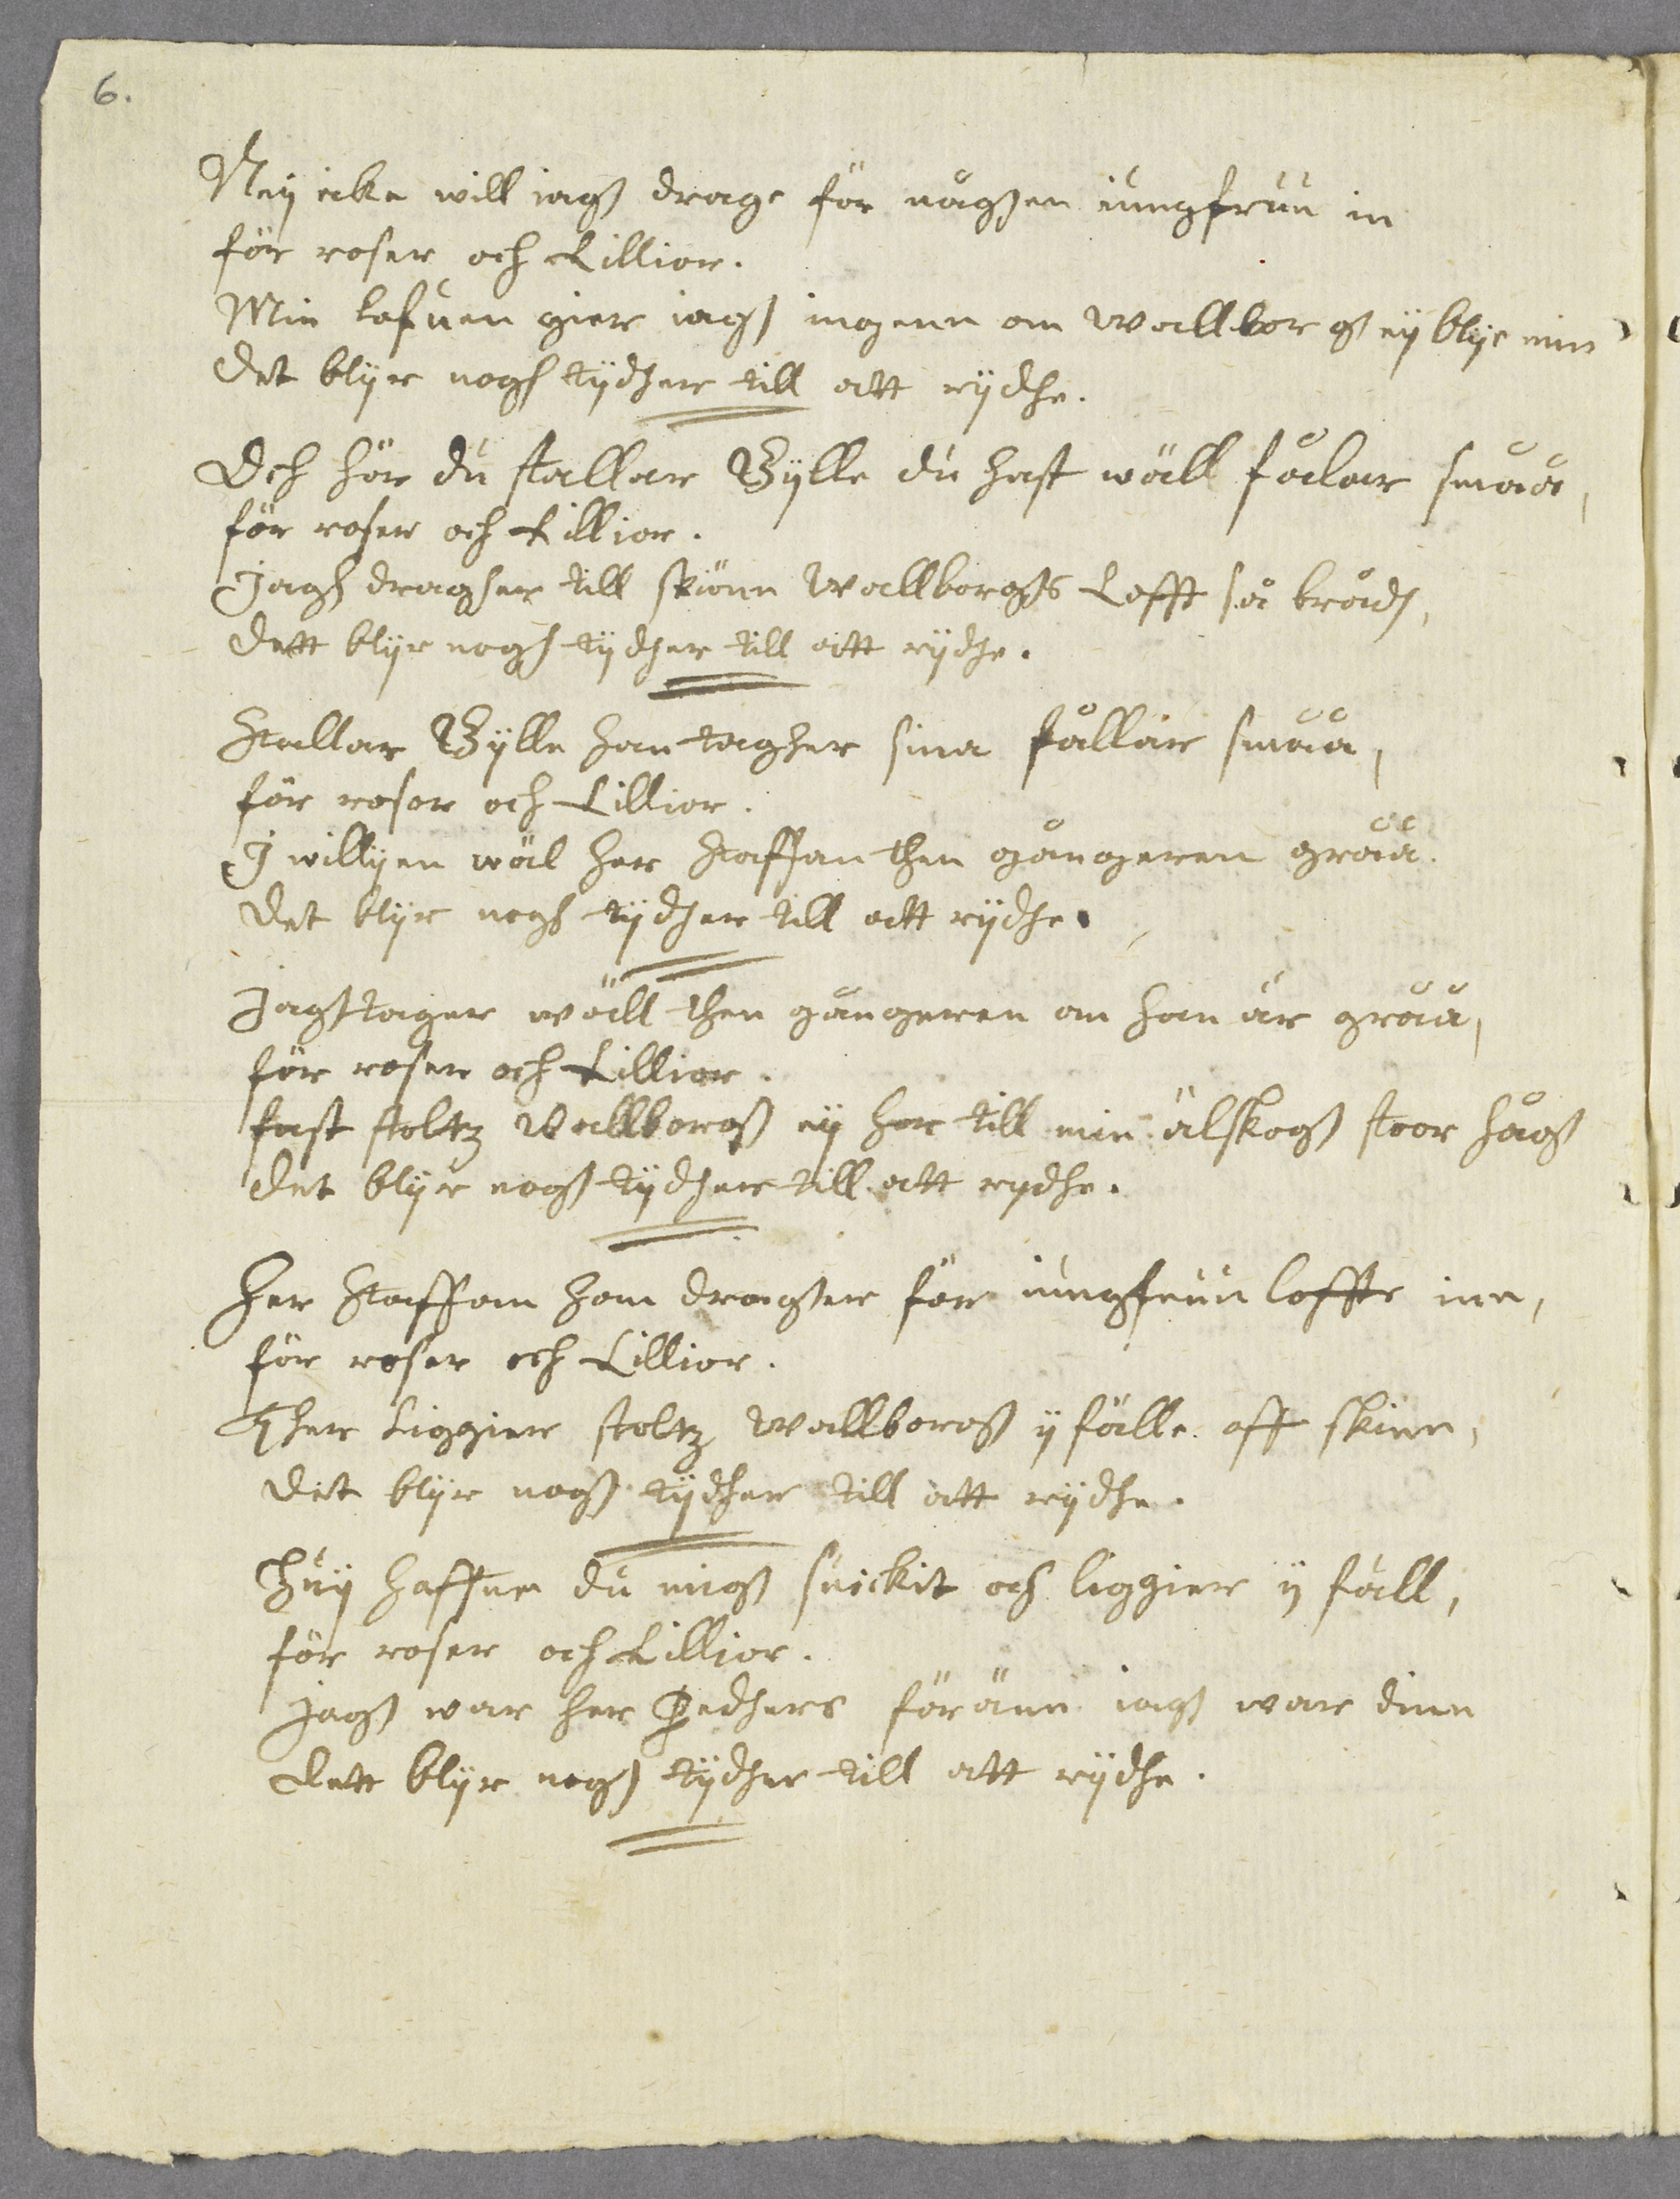 6.
Neij icke will iagh drage för någhen iungfruu in
för roser och Lillior.
Min lefuen gier iagh ingenn om Wallborgh eij blijr min
Det blijr nogh tijdher till att rijdhe.
Och hör du stallar Bylle du hast wäll fålar småå,
för roser och Lillior.
Jagh dragher till skiönn Wallborghs Lofft så brådh,
Dett blijr nogh tijdher till att rijdhe.
Stallar Bylle han tagher sina fållar småå,
för roser och Lillior.
J willijen wäl her Staffan then gångeren gråå.
Det blijr nogh tijdher till att rijdhe.
Jagh tager wäll then gångeren om han är gråå,
för roser och Lillior.
fast stoltz Wallborgh eij har till min älskogh stoor hågh
Det blijr nogh tijdher till att rydhe.
Her Staffan han dragher för iungfruu loffte inn,
för roser och Lillior.
Ther Liggier stoltz Wallborgh ij fälle aff skinn,
Det blijr nogh tijdher till att rijdhe.
Huij haffuer du migh suickit och liggier ij fäll,
för roser och Lillior.
Jagh war her Pedhers föränn iagh war dinn
Dett blijr nogh tijdher till att rijdhe.